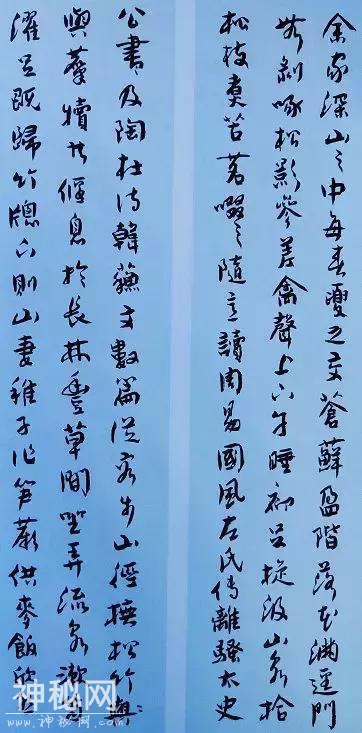 余家深山之中每春夏之交蒼蘚盈階落花滿逕門
無剝啄松影參差禽聲上下午睡初足旋汲山泉拾
松枝煮苦茗啜之隨意讀周易國風左氏傳離騷太史
公書及陶杜詩韓蘇文數篇從容步山徑撫松竹與
與麛犢共偃息於長林豐草間坐弄流泉漱齒
濯足既歸竹牕下則山妻稚子作筍蕨供麥飯欣然
神秘网
WWW.神秘网.COM